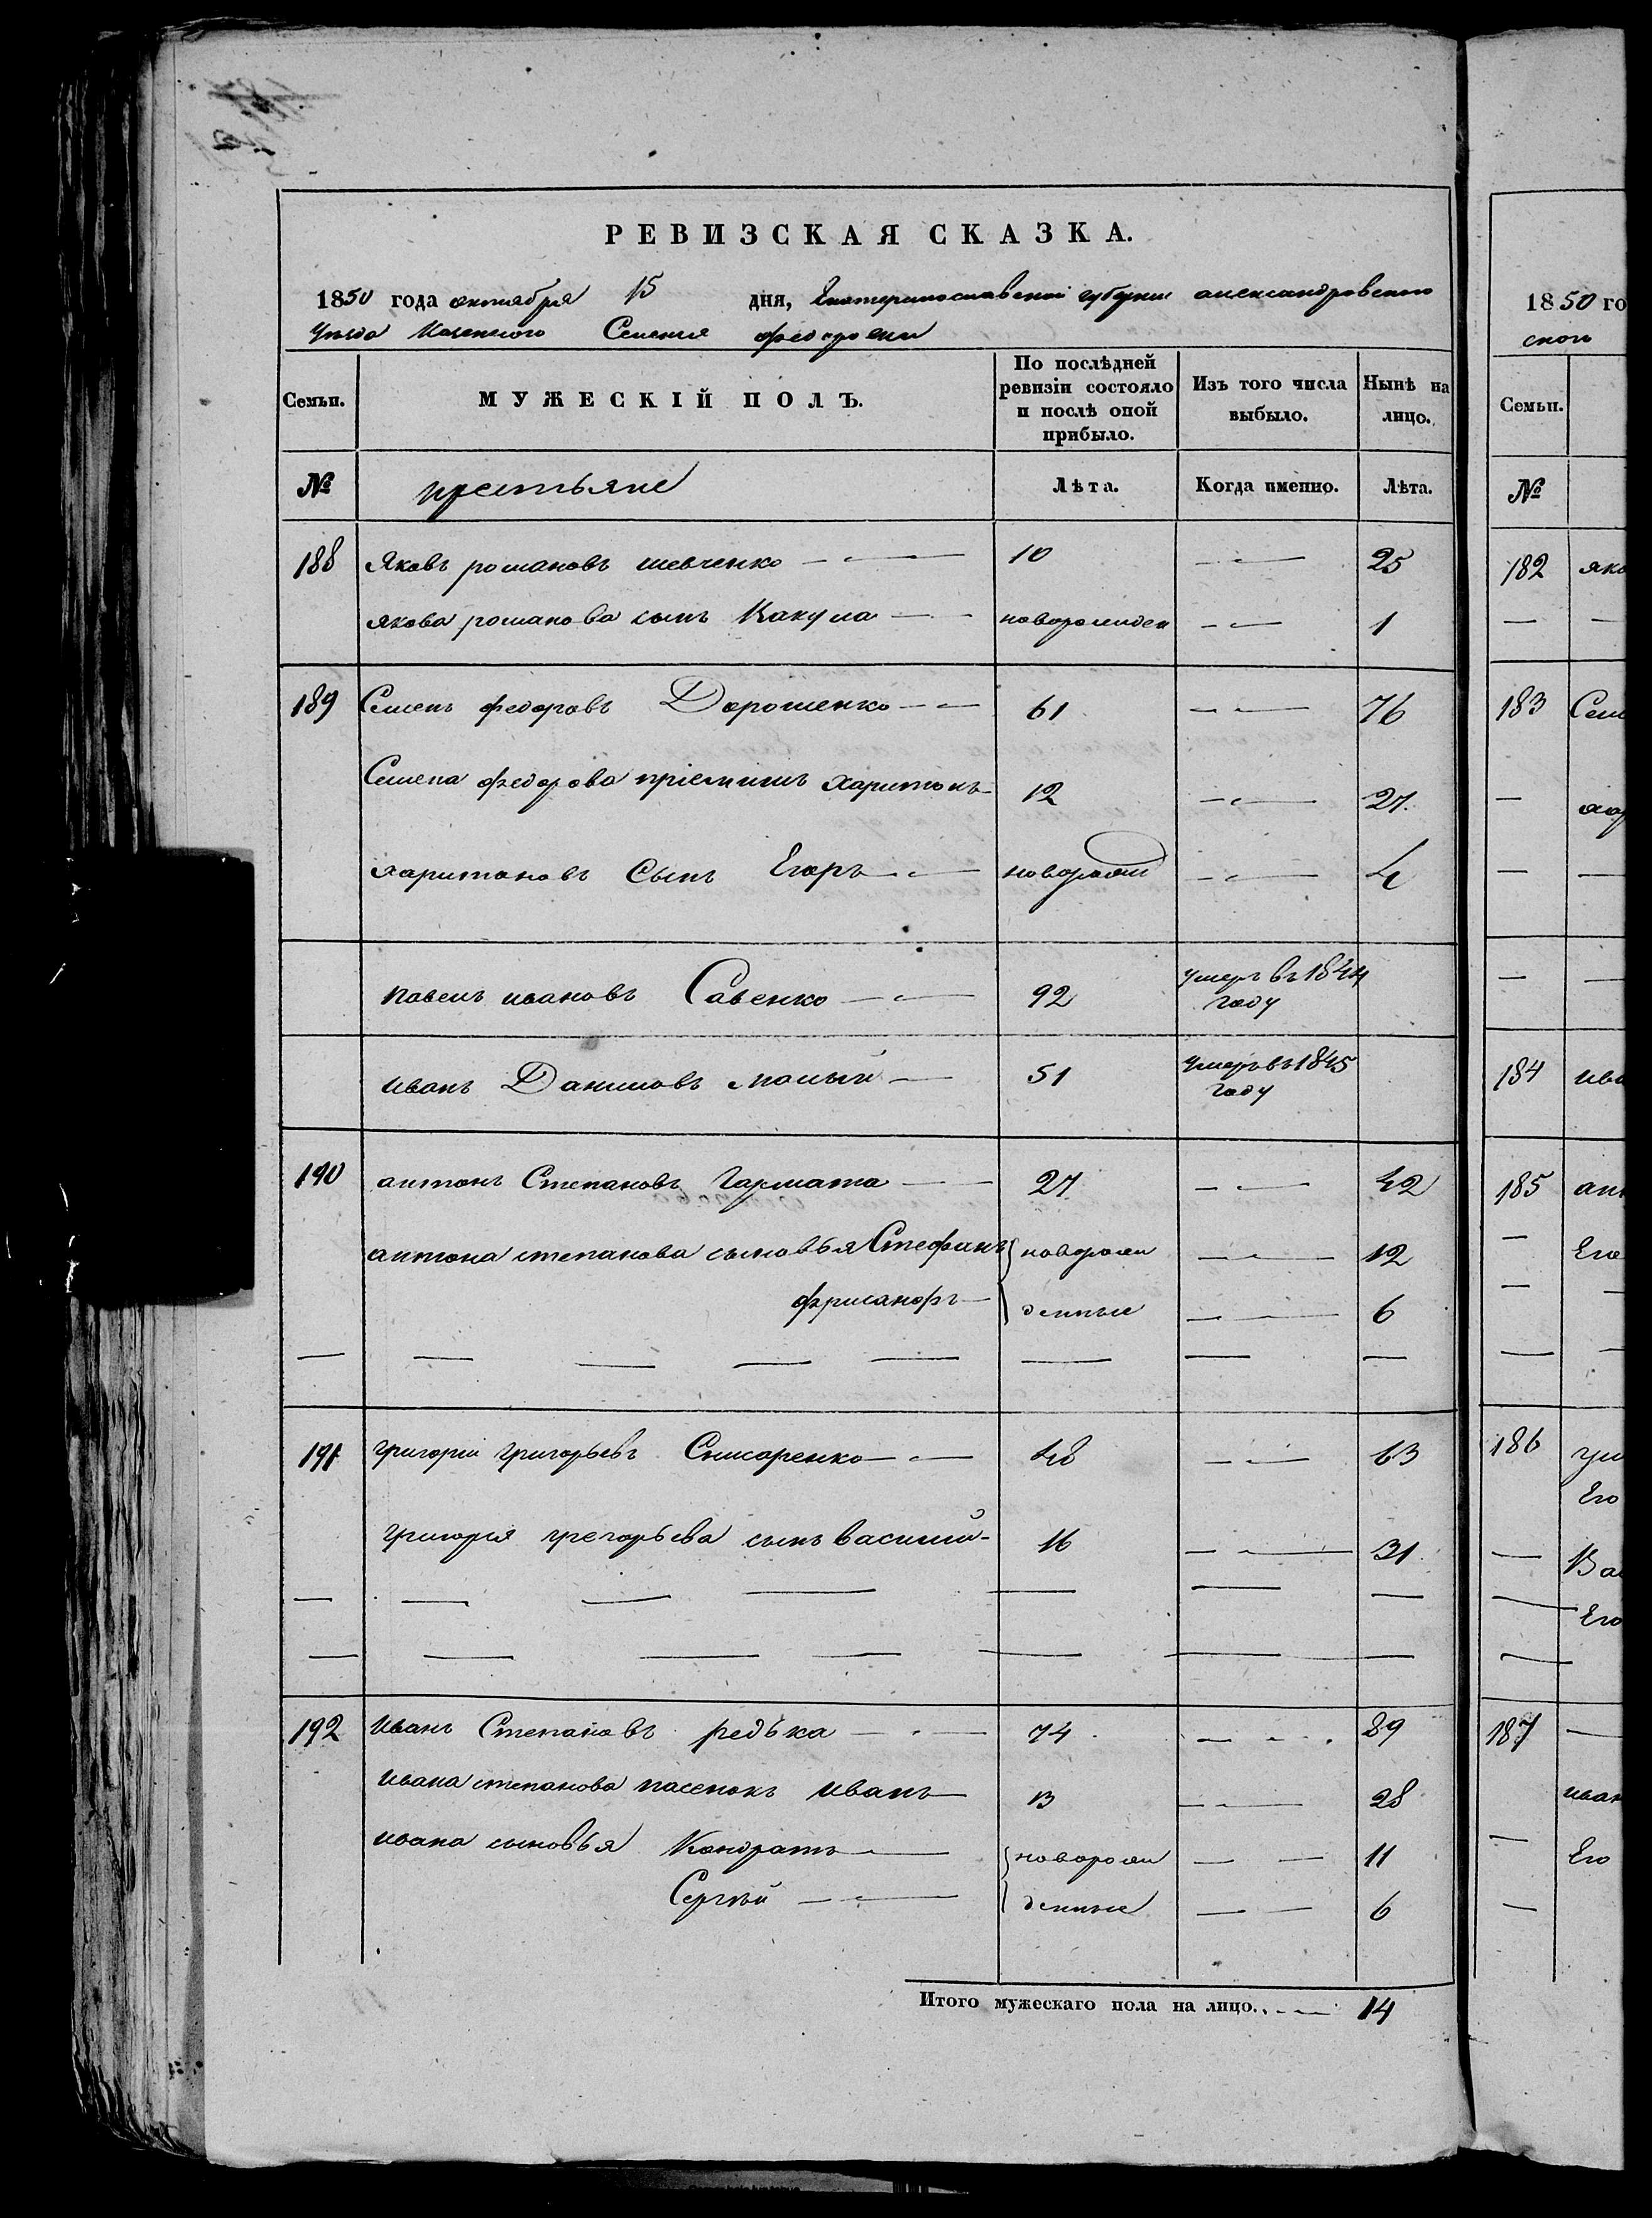 РЕВИЗСКАЯ СКАЗКА.
1850 года октября 15 дня, Екатеринославской губернии александровского
уезда Казенного Селения федоровки
Семьи. МУЖЕСКІЙ ПОЛЪ. По послѣдней ревизіи состояло и послѣ оной прибыло. Изъ того числа выбыло. Нынѣ на лицо.
№ крестьяне Лѣта. Когда именно. Лѣта.
188 Яковъ романовъ шевченко 10 25
якова романова сынъ 1
189 Семенъ федоровъ Дорошенко 61 76
Семена федорова пріемишъ харитонъ 12 27.
харитоновъ Сынъ Егоръ новорожд 4
павелъ ивановъ Савенко 92 умеръ въ 1844 году
иванъ Даниловъ малый 51 умеръ въ 1845 году
190 антонъ Степановъ Гармата 27 42
антона степанова сыновья Стефанъ новорож 12
денные 6
191 григорій григорьевъ 48 63
григорія григорьева сынъ василій 16 31.
192 иванъ Степановъ редька 74 89
ивана степанова пасенокъ иванъ 13 28
ивана сыновья Кондратъ новорож 11
Сергѣй денные 6
Итого мужескаго пола на лицо. 14
1850 го
ской
Семьи.
№
182 яко
183 Сем
хар
184 ива
185 ант
Его
186 гри
Его
Ва
Его
187
иван
Его